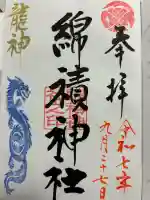 奉拝
令和七年
九月二十七日
綿積神社
龍神